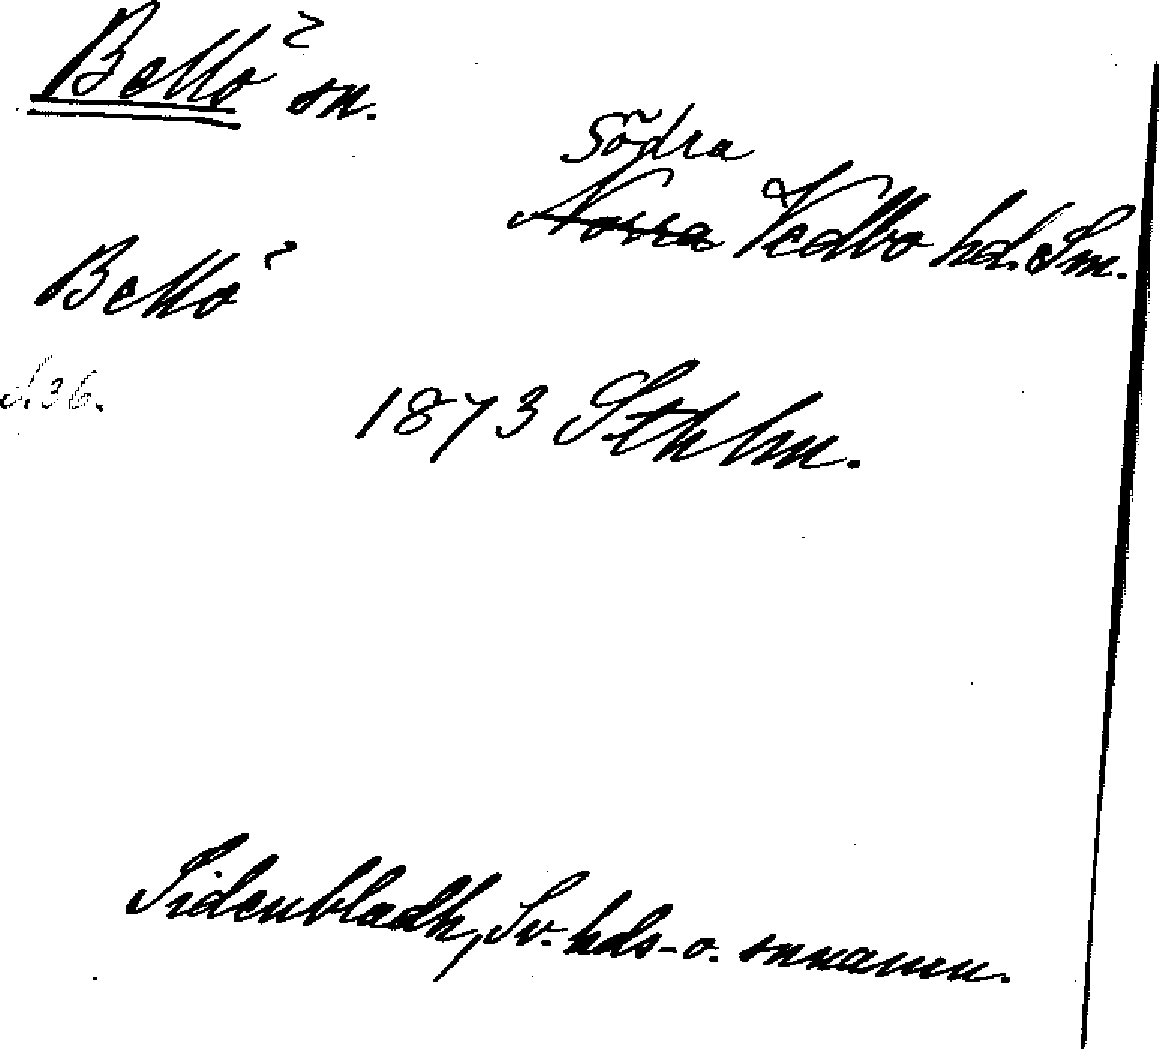 Bellö sn.
Södra
Norra Vedbo hd. Sm.
Bellö
s. 36.
1873 Sthlm.
Sidenbladh, Sv. hds- o. snnamn.